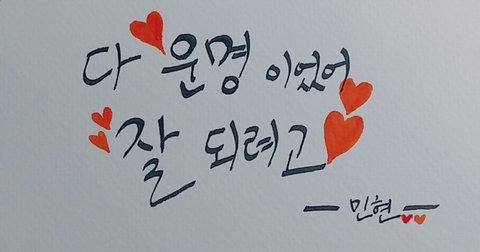 다 운경 이었어
잘 되려고
- 민현 -